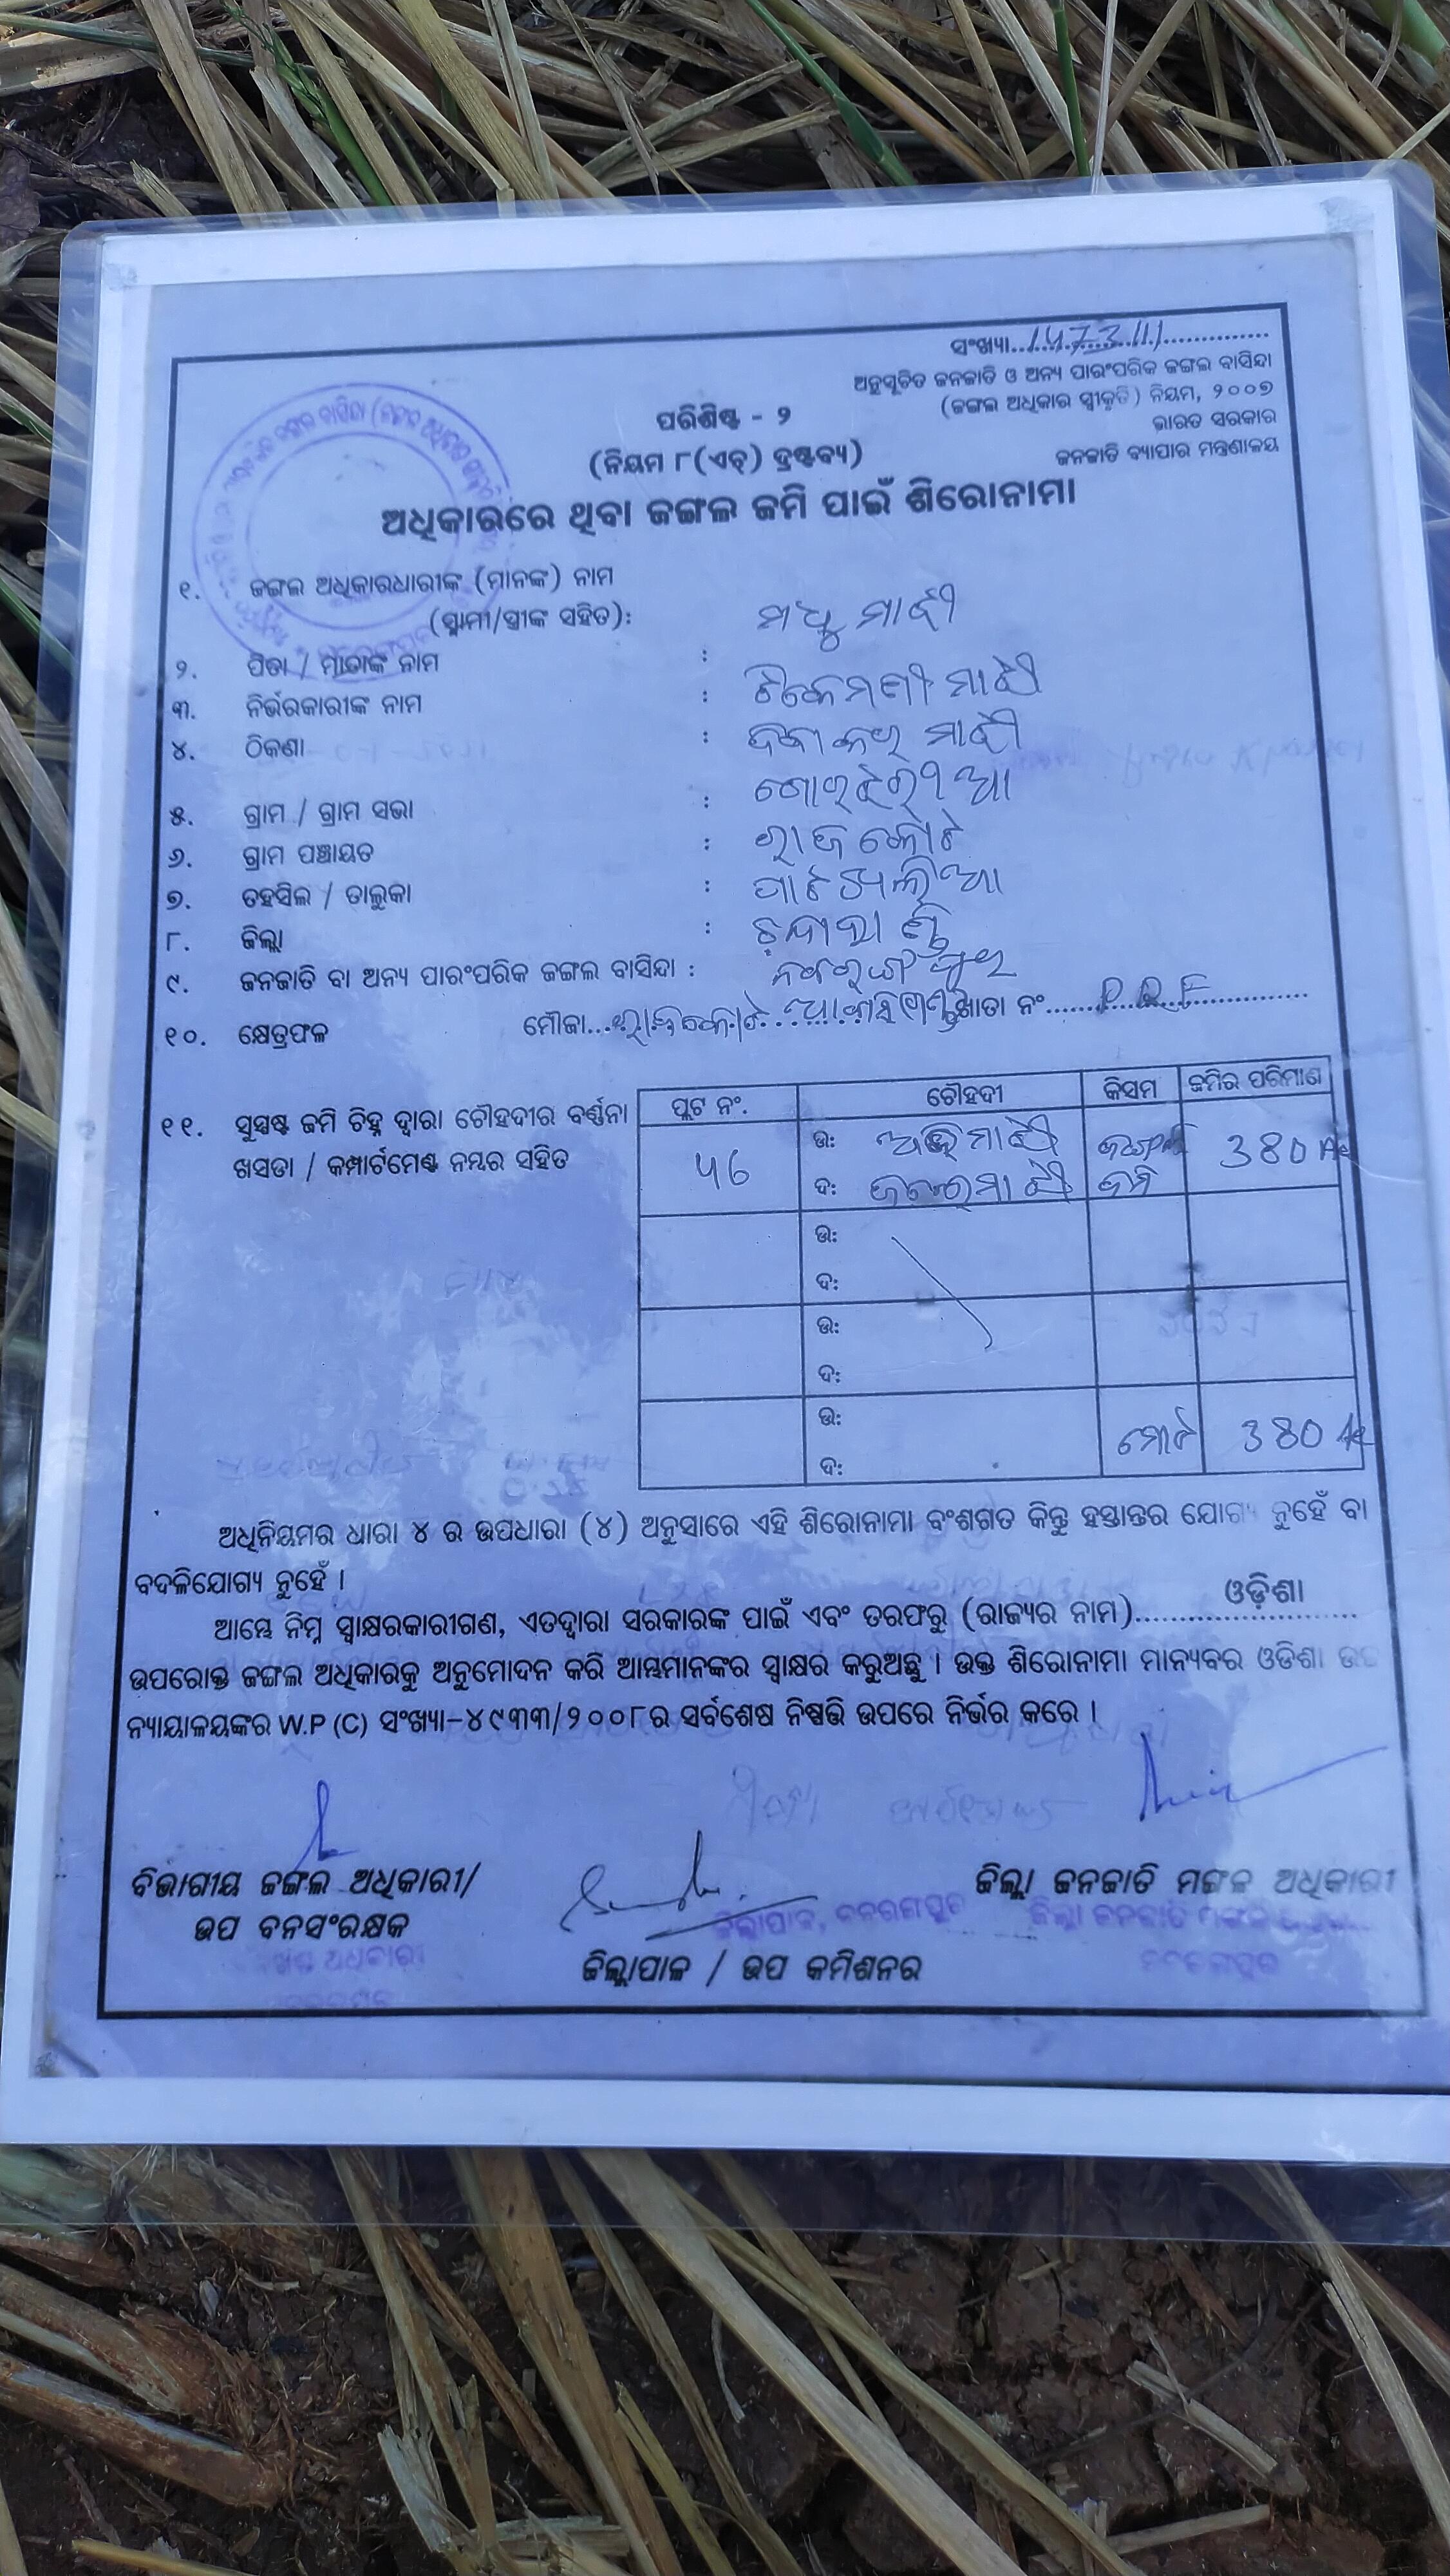 ସଂଖ୍ୟା 1473/11
ଅନୁସୂଚିତ ଜନଜାତି ଓ ଅନ୍ୟ ପାରଂପରିକ ଜଙ୍ଗଲ ବାସିନ୍ଦା
(ଜଙ୍ଗଲ ଅଧିକାର ସ୍ୱୀକୃତି) ନିୟମ, ୨୦୦୭
ଭାରତ ସରକାର
ଜନଜାତି ବ୍ୟାପାର ମନ୍ତ୍ରଣାଳୟ
ପରିଶିଷ୍ଟ - ୨
(ନିୟମ ୮(ଏଚ୍) ଦ୍ରଷ୍ଟବ୍ୟ)
ଅଧିକାରରେ ଥିବା ଜଙ୍ଗଲ ଜମି ପାଇଁ ଶିରୋନାମା
୧. ଜଙ୍ଗଲ ଅଧିକାରଧାରୀଙ୍କ (ମାନଙ୍କ) ନାମ
(ସ୍ୱାମୀ/ସ୍ତ୍ରୀଙ୍କ ସହିତ): ମଧୁ ମାଝୀ
୨. ପିତା / ମାତାଙ୍କ ନାମ :
୩. ନିର୍ଭରକାରୀଙ୍କ ନାମ : ମାଝୀ
୪. ଠିକଣା : ମାଝୀ
୫. ଗ୍ରାମ / ଗ୍ରାମ ସଭା :
୬. ଗ୍ରାମ ପଞ୍ଚାୟତ : ରାଜକୋଟ
୭. ତହସିଲ / ତାଲୁକା :
୮. ଜିଲ୍ଲା :
୯. ଜନଜାତି ବା ଅନ୍ୟ ପାରଂପରିକ ଜଙ୍ଗଲ ବାସିନ୍ଦା :
୧୦. କ୍ଷେତ୍ରଫଳ ମୌଜା ରାଜକୋଟ ଖାତା ନଂ PRF
୧୧. ସୁସ୍ପଷ୍ଟ ଜମି ଚିହ୍ନ ଦ୍ୱାରା ଚୌହଦୀର ବର୍ଣ୍ଣନା
ଖସଡା / କମ୍ପାର୍ଟମେଣ୍ଟ ନମ୍ବର ସହିତ
ପ୍ଲଟ ନଂ. ଚୌହଦୀ କିସମ ଜମିର ପରିମାଣ
46 ଉ: ମାଝୀ ଜଙ୍ଗଲ 380
ଦ: ମାଝୀ ଜମି
ଉ:
ଦ:
ଉ:
ଦ:
ଉ: ମୋଟ 380
ଦ:
ଅଧିନିୟମର ଧାରା ୪ ର ଉପଧାରା (୪) ଅନୁସାରେ ଏହି ଶିରୋନାମା ବଂଶଗତ କିନ୍ତୁ ହସ୍ତାନ୍ତର ଯୋଗ୍ୟ ନୁହେଁ ବା
ବଦଳିଯୋଗ୍ୟ ନୁହେଁ ।
ଆମ୍ଭେ ନିମ୍ନ ସ୍ୱାକ୍ଷରକାରୀଗଣ, ଏତଦ୍ଦ୍ୱାରା ସରକାରଙ୍କ ପାଇଁ ଏବଂ ତରଫରୁ (ରାଜ୍ୟର ନାମ) ଓଡ଼ିଶା
ଉପରୋକ୍ତ ଜଙ୍ଗଲ ଅଧିକାରକୁ ଅନୁମୋଦନ କରି ଆମ୍ଭମାନଙ୍କର ସ୍ୱାକ୍ଷର କରୁଅଛୁ । ଉକ୍ତ ଶିରୋନାମା ମାନ୍ୟବର ଓଡିଶା
ନ୍ୟାୟାଳୟଙ୍କର W.P (C) ସଂଖ୍ୟା-୪୯୩୩/୨୦୦୮ର ସର୍ବଶେଷ ନିଷ୍ପତ୍ତି ଉପରେ ନିର୍ଭର କରେ ।
ବିଭାଗୀୟ ଜଙ୍ଗଲ ଅଧିକାରୀ/
ଉପ ବନସଂରକ୍ଷକ
ଜିଲ୍ଲା ଜନଜାତି ମଙ୍ଗଳ ଅଧିକାରୀ
ଜିଲ୍ଲାପାଳ, ନବରଙ୍ଗପୁର
ଜିଲ୍ଲାପାଳ / ଉପ କମିଶନର